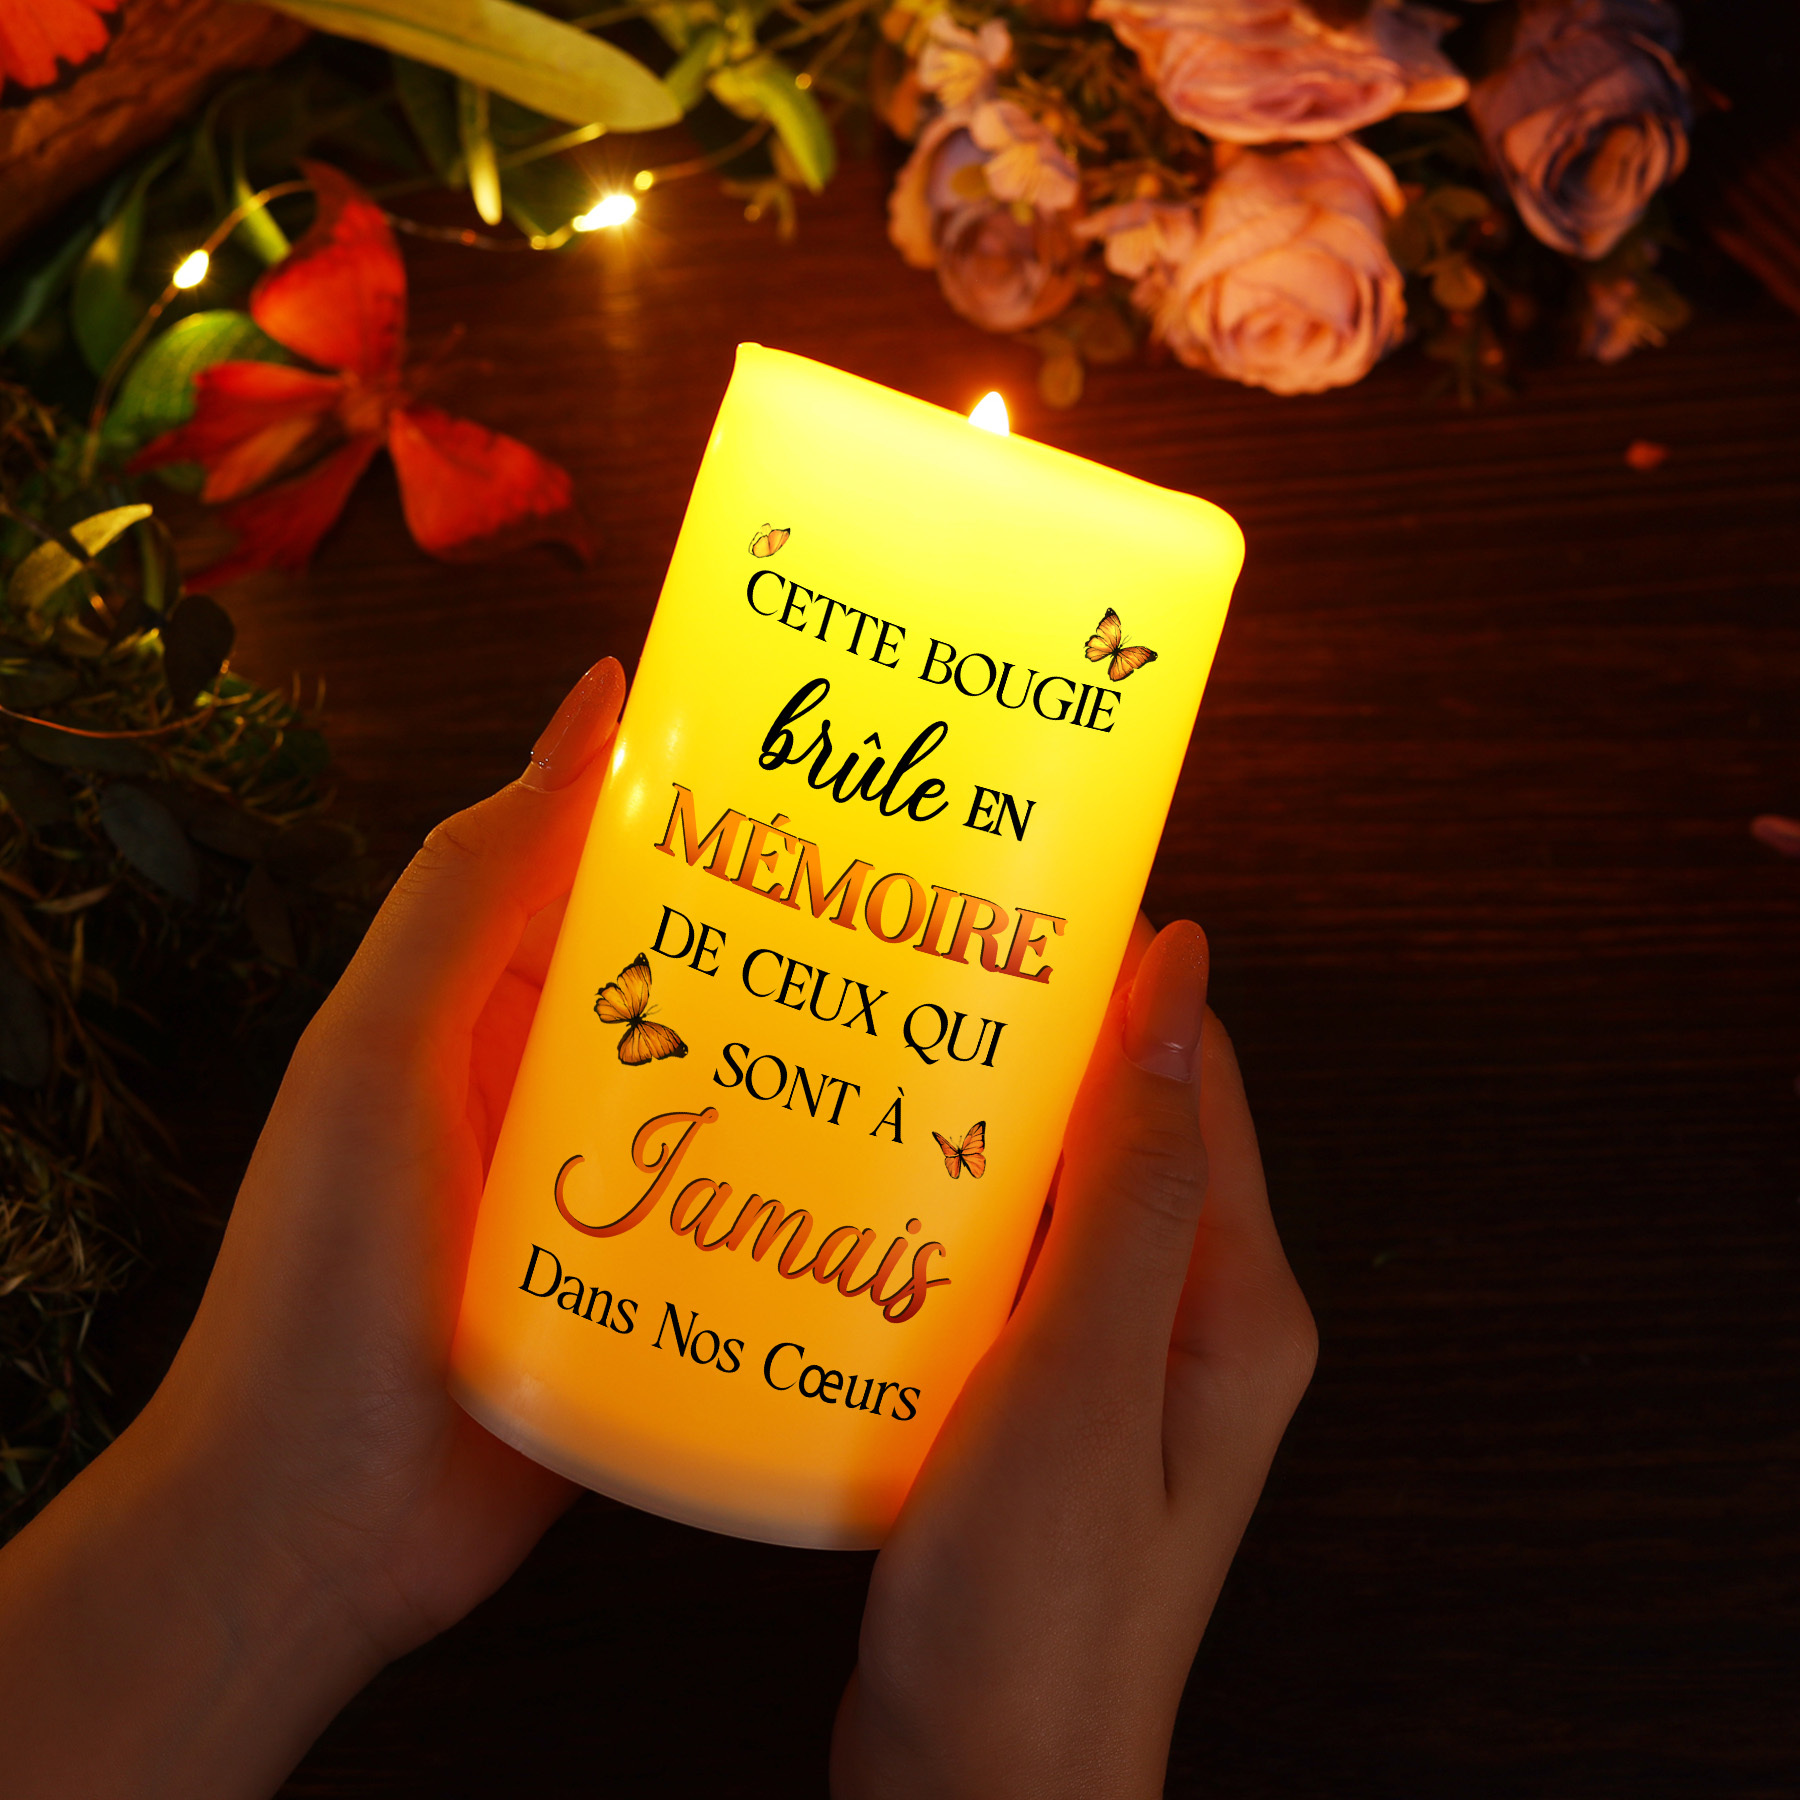 CETTE BOUGIE
brûle EN
MÉMOIRE
DE CEUX QUI
SONT À
Jamais
Dans Nos Cœurs